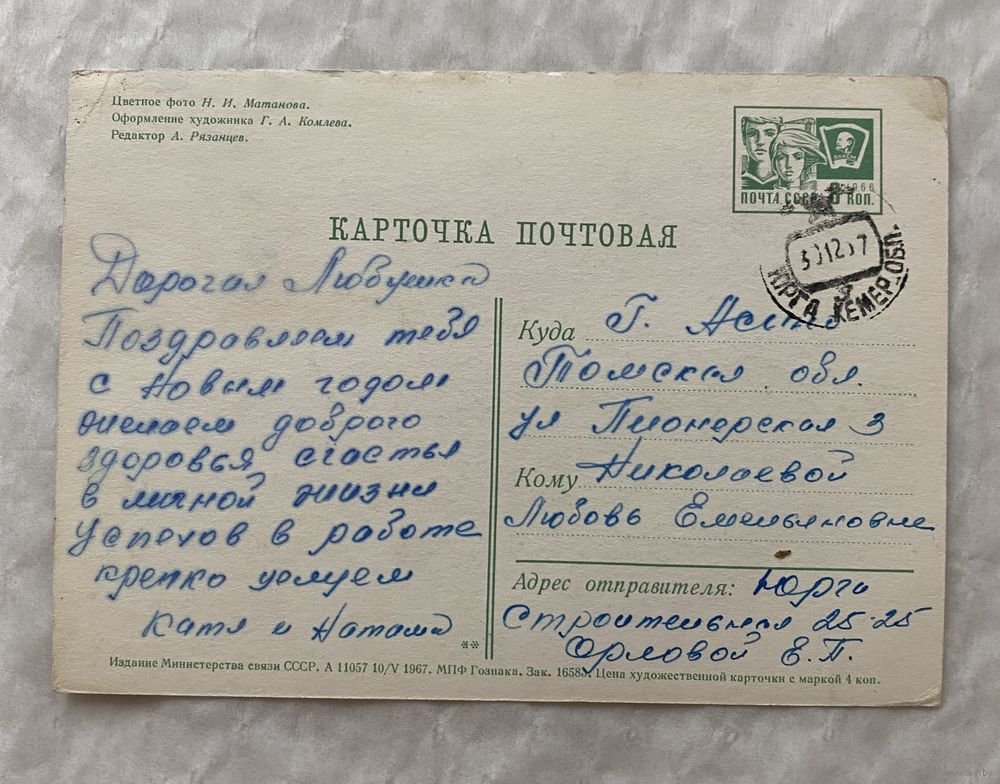 Цветное фото Н. И. Матанова.
Оформление художника Г. А. Комлева.
Редактор А. Рязанцев.
ВЛКСМ
1966
ПОЧТА СССР 3 КОП.
КАРТОЧКА ПОЧТОВАЯ
30 12 67
ЮРГА КЕМЕР.ОБЛ.
Дорогая Любушка
Поздравляем тебя
с Новым годом
желаем доброго
здоровья счастья
в личной жизни
успехов в работе
крепко целуем
Катя и Наташа
Куда г. Асино
Томская обл.
ул Пионерская 3
Кому Николаевой
Любовь Емельяновне
Адрес отправителя: Юрга
Строительная 25-25
Орловой Е.П.
**
Издание Министерства связи СССР. А 11057 10/V 1967. МПФ Гознака. Зак. 16583. Цена художественной карточки с маркой 4 коп.
www.ay.by